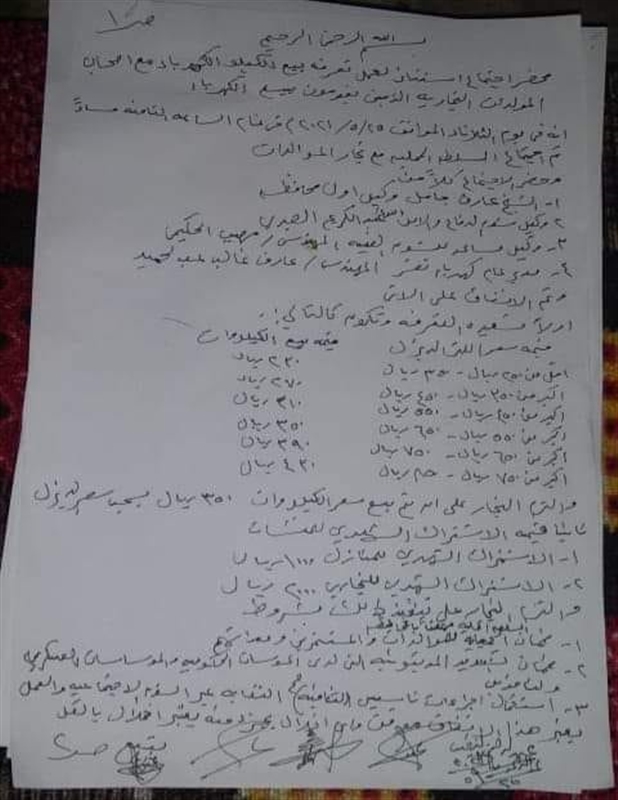 ص١
بسم الله الرحمن الرحيم
محضر اجتماع استثنائي لعمل تعرفة بيع الكيلو الكهرباء مع اصحاب
المولدات التجارية الذين يقومون ببيع الكهرباء
انه في يوم الثلاثاء الموافق ٢٠٢١/٥/٢٥م في تمام الساعة الثامنة مساءً
تم اجتماع السلطة المحلية مع تجار المولدات
وحضر الاجتماع كلاً من
١- الشيخ عارف جامل وكيل اول محافظة
٢- وكيل لشئوم الدفاع والامن عبدالكريم الصبري
٣- وكيل مساعد للشئوم الفنية المهندس/ مهيب الحكيمي
٤- مدير عام كهرباء تعز المهندس/ عارف غالب عبدالحميد
وتم الاتفاق على الاتي
اولاً تسعيره التعرفه وتكوم كالتالي:-
قيمه سعر اللتر الديزل قيمه بيع الكيلووات
اقل من ٢٥٠ ريال - ٣٥٠ ريال ٢٣٠ ريال
اكبر من ٣٥٠ ريال - ٤٥٠ ريال ٢٧٠ ريال
اكبر من ٤٥٠ ريال - ٥٥٠ ريال ٣١٠ ريال
اكبر من ٥٥٠ ريال - ٦٥٠ ريال ٣٥٠ ريال
اكبر من ٦٥٠ ريال - ٧٥٠ ريال ٣٩٠ ريال
اكبر من ٧٥٠ ريال - ريال ٤٣٠ ريال
والتزم التجار على ان تم بيع سعر الكيلووات ٣٥٠ ريال بحسب سعر الديزل
ثانيا قيمه الاشتراك الشهري للمنشات
١- الاشتراك الشهري للمنازل ١٠٠٠ ريال
٢- الاشتراك الشهري للتجاري ٢٠٠٠ ريال
والتزم التجار على تنفيذ ذلك بشروط
السلطه المحليه
١- ضمان الحماية للمولدات والمستثمرين ومعداتهم
٢- ضمان تسديد المديونيه التي لدى المؤسسات الحكوميه والموسسات والعسكري
والنافذين
٣- استكمال اجراءات تاسيس النقابة عبر الشئوم الاجتماعيه والعمل
يعتبر هذا الاتفاق اخلال منه يعتبر اخلال بالكل
ص٢